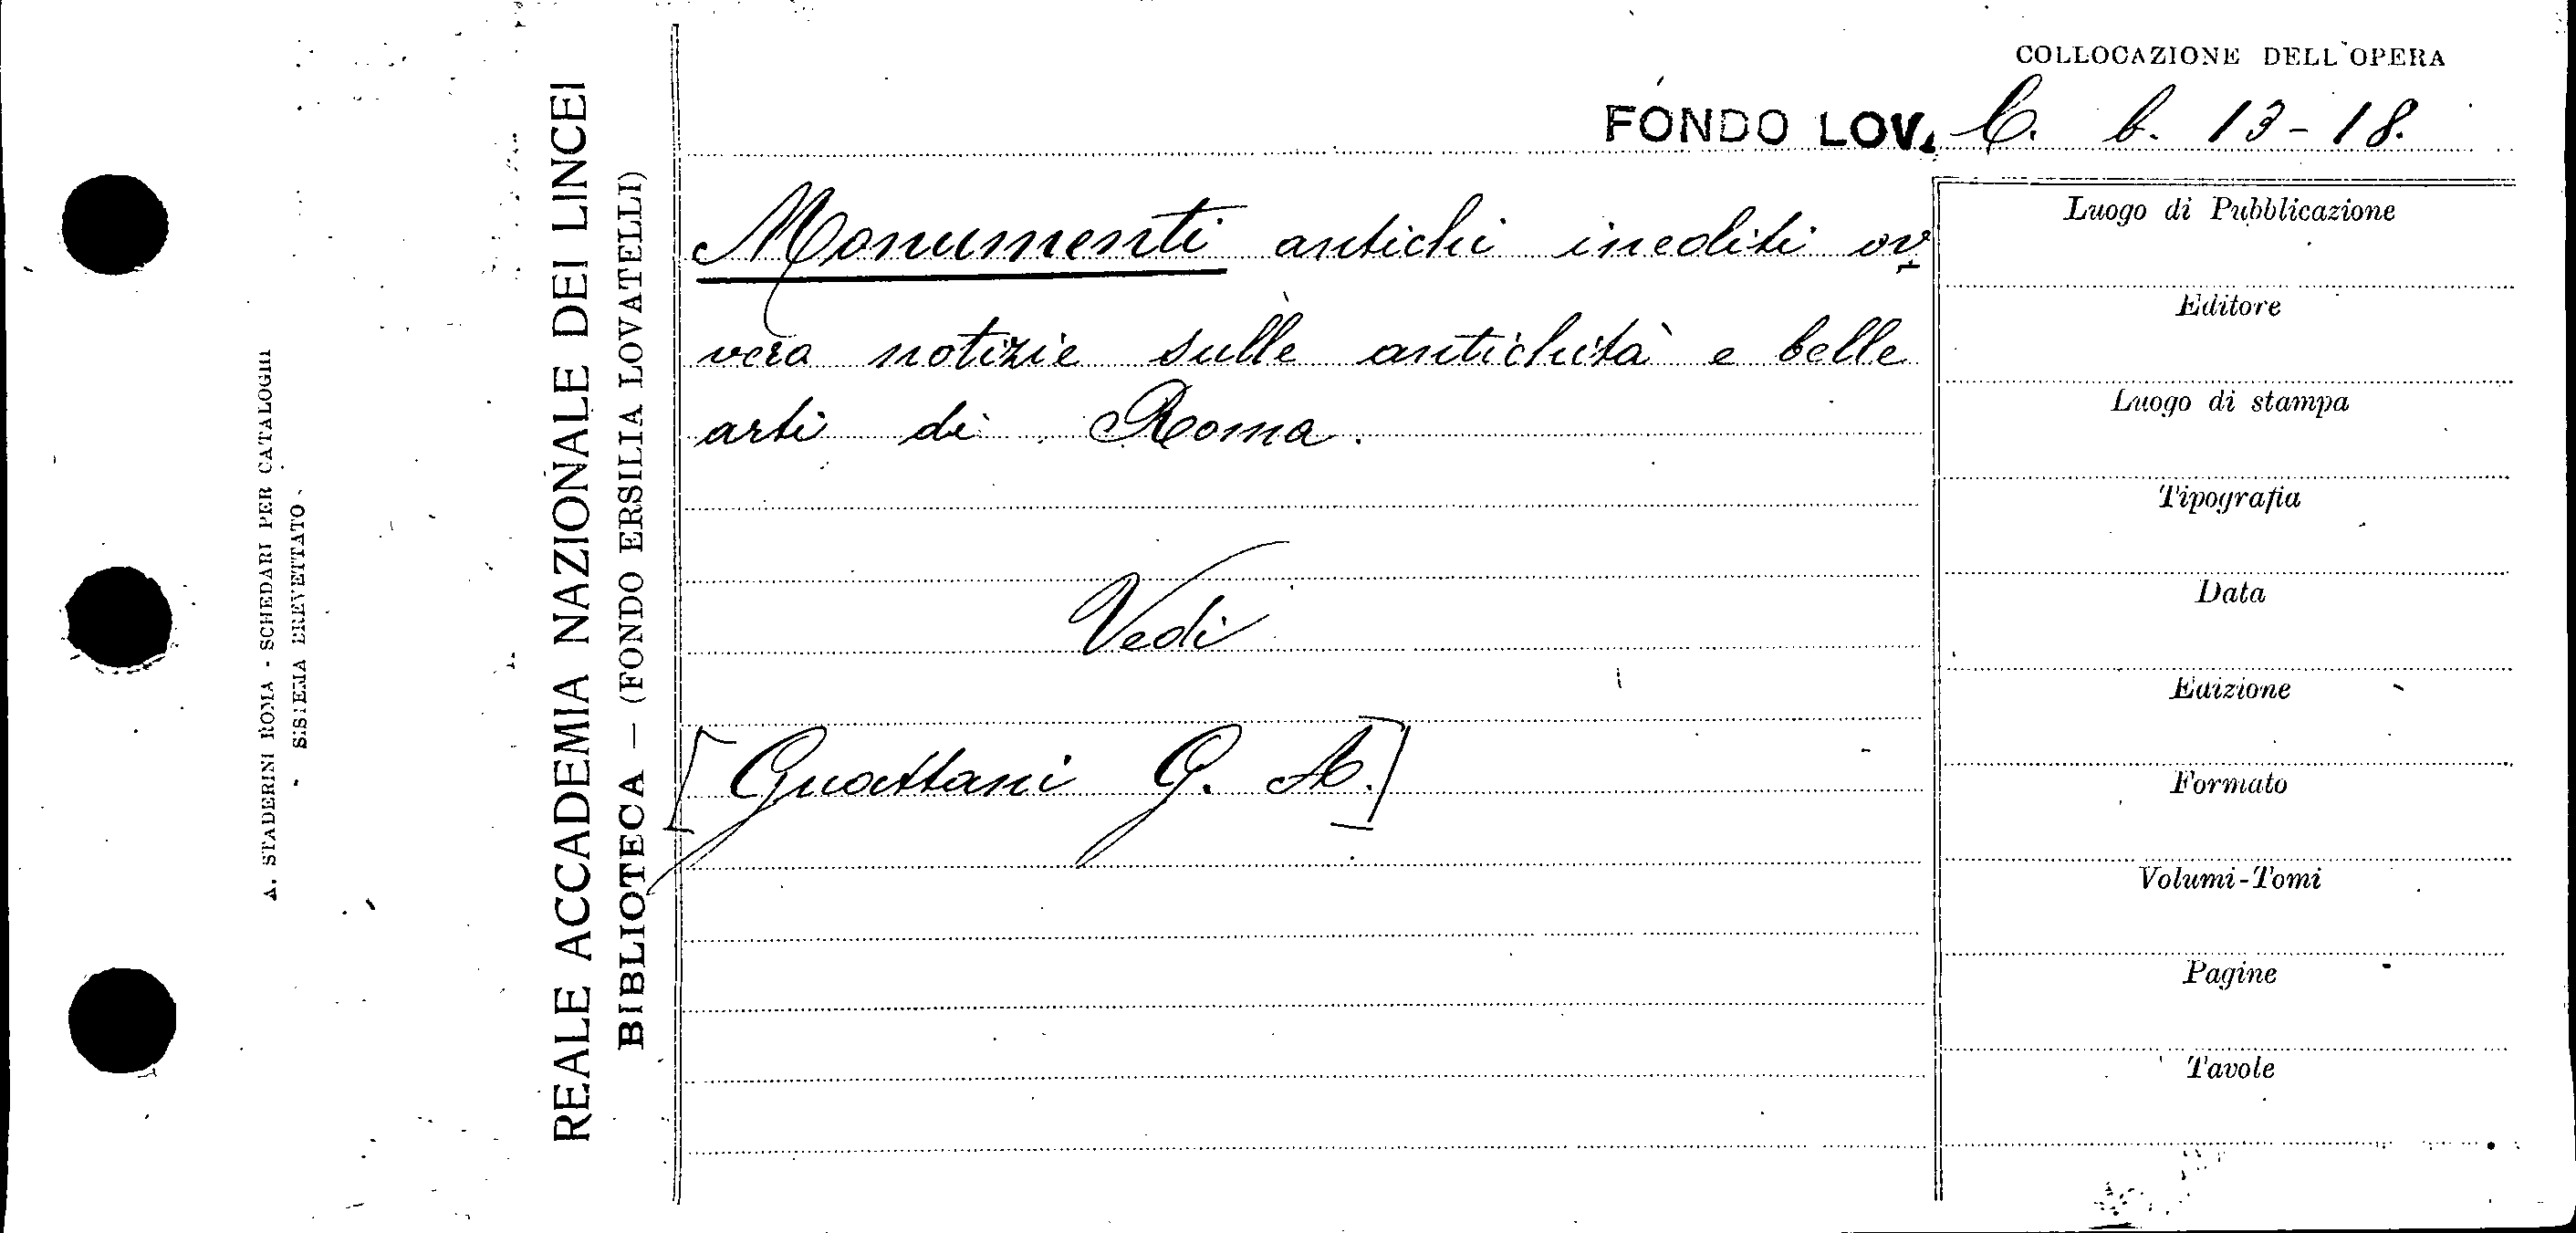 COLLOCAZIONE DELL'OPERA
FONDO LOV. C. b. 13-18.
Monumenti antichi inediti ov
vero notizie sulle antichità e belle
arti di Roma.
Vedi
[Guattani G. A.]
Luogo di Pubblicazione
Editore
Luogo di stampa
Tipografia
Data
Edizione
Formato
Volumi-Tomi
Pagine
Tavole
REALE ACCADEMIA NAZIONALE DEI LINCEI
BIBLIOTECA — (FONDO ERSILIA LOVATELLI)
A. STADERINI ROMA - SCHEDARI PER CATALOGHI
- SISTEMA BREVETTATO -